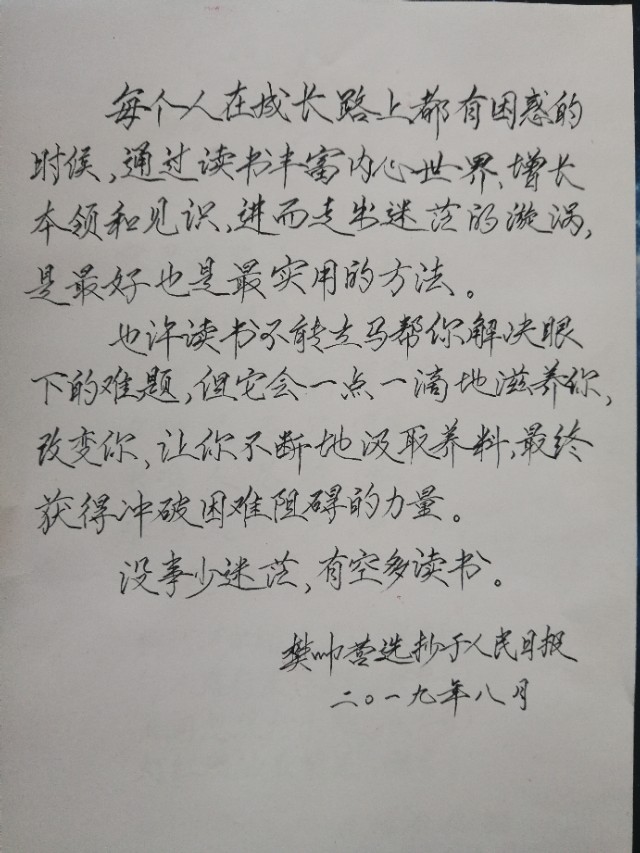 每个人在成长路上都有困惑的
时侯,通过读书丰富内心世界、增长
本领和见识,进而走出迷茫的漩涡,
是最好也是最实用的方法。
也许读书不能立马帮你解决眼
下的难题,但它会一点一滴地滋养你,
改变你,让你不断地汲取养料,最终
获得冲破困难阻碍的力量。
没事少迷茫,有空多读书。
樊帅营选抄于人民日报
二〇一九年八月